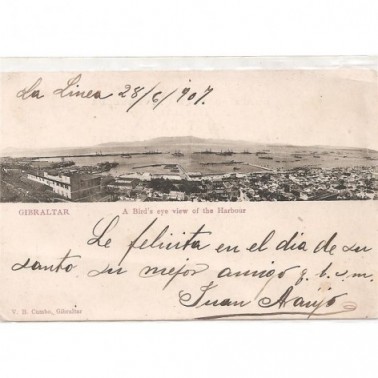 La Linea 28/6/907.
GIBRALTAR. A Bird's eye view of the Harbour
Le felicita en el dia de su
santo su mejor amigo q. b. s. m.
Juan Araujo
V. B. Cumbo, Gibraltar